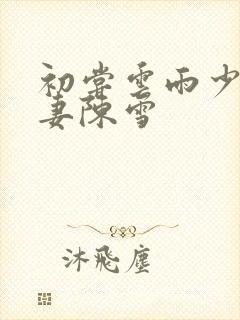 初尝雲雨少
妻陳雪
沐飛塵